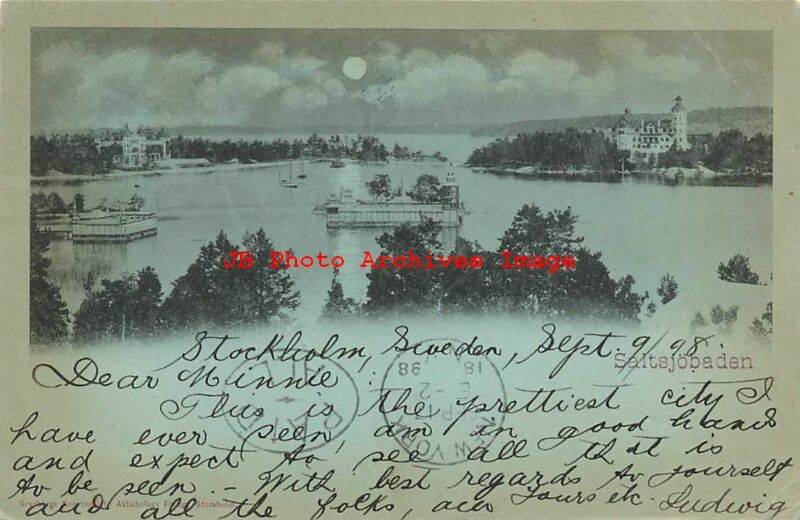 JB Photo Archives Image
Stockholm, Sweden, Sept. 9/98.
Saltsjöbaden
Dear Minnie:
This is the prettiest city I
have ever seen, am in good hands
and expect to see all that is
to be seen - With best regards to yourself
and all the folks, am Yours etc. Ludwig
Aktiebolag Stockholm
NEW YORK
98